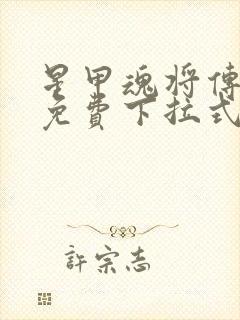 星甲魂将傳
免費下拉式
許宗志